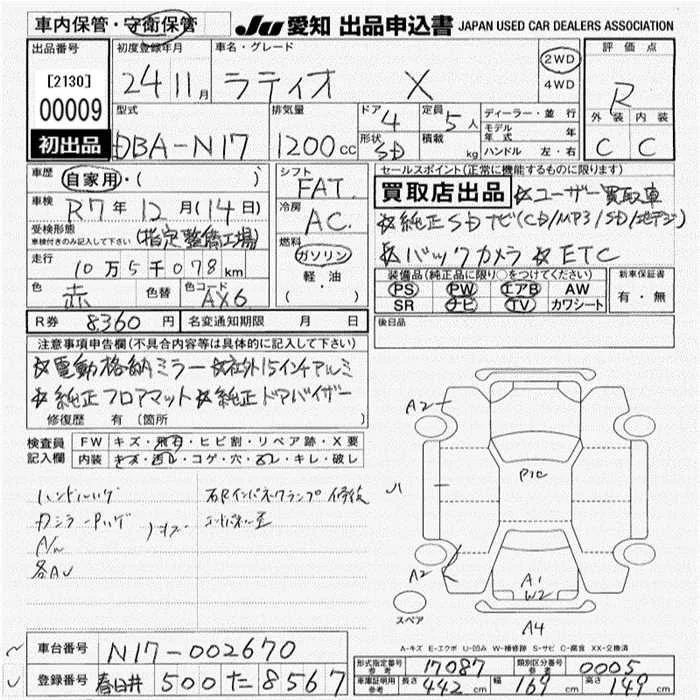 車内保管・守衛保管
JU 愛知 出品申込書 JAPAN USED CAR DEALERS ASSOCIATION
出品番号 初度登録年月 車名・グレード 評価点
[2130] 00009 24 11月 ラティオ X 2WD 4WD R
初出品
型式 排気量 ドア 4 定員 5人 ディーラー・並行 外装 内装
DBA-N17 1200cc 形状 SD 積載 kg モデル年式 年 C C
ハンドル 左・右
車歴 自家用・( ) シフト FAT. セールスポイント(正常に機能するものに限ります)
買取店出品 ☆ユーザー買取車
車検 R7年12月(14日) 冷房 AC. ☆純正SDナビ(CD/MP3/SD/地デジ)
受検形態 車検付きのみ記入して下さい (指定整備工場) 燃料 ガソリン ☆バックカメラ ☆ETC
走行 10万5千078km 軽・油 ( )
装備品(純正品に限り○をつけてください) 新車保証書
色 赤 色替 色コード AX6 PS PW エアB AW 有・無
SR ナビ TV カワシート
R券 8360円 名変通知期限 月 日 後日品
注意事項申告欄(不具合内容等は具体的に記入して下さい)
☆電動格納ミラー ☆社外15インチアルミ
☆純正フロアマット ☆純正ドアバイザー
修復歴 有(箇所 )
検査員記入欄 FW キズ・飛石・ヒビ割・リペア跡・X要
内装 キズ・汚レ・コゲ・穴・凹レ・キレ・破レ
A2 P1C A2 A1 W2 A4
スペア
A-キズ E-エクボ U-凹み W-補修跡 S-サビ C-腐食 XX-交換済
車台番号 N17-002670
形式指定番号 参考 17087 類別区分番号 参考 0005
登録番号 春日井 500 た 8567
車庫証明用 参考 長さ 442cm 幅 169cm 高さ 149cm